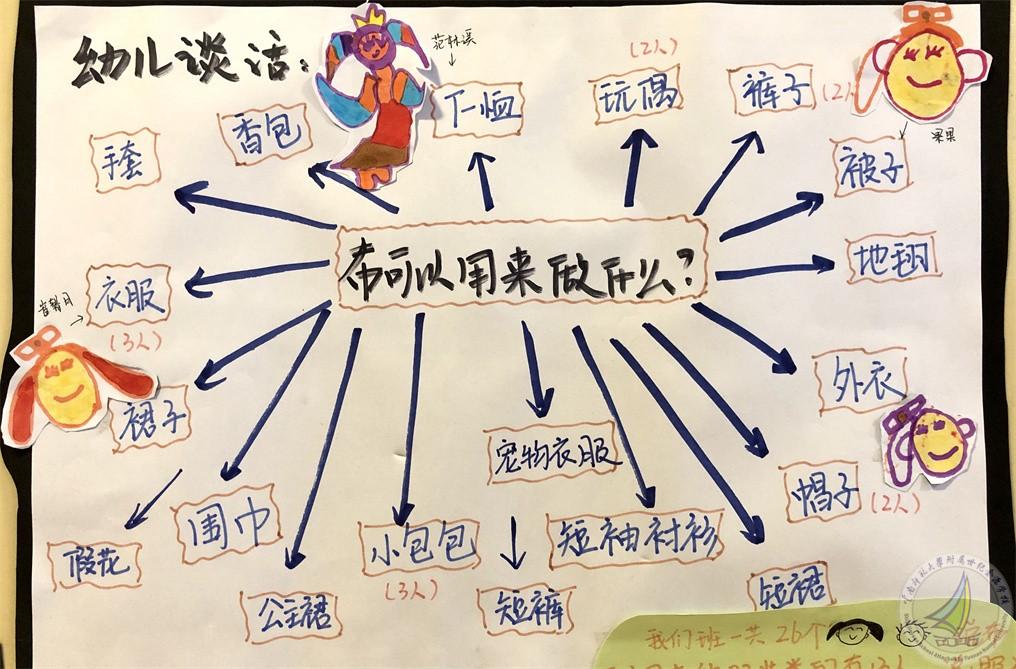 幼儿谈话：
香包
下恤
(2人)
玩偶
裤子
(2人)
手套
果果
被子
布可以用来做什么?
地毯
衣服
(3人)
外衣
裙子
宠物衣服
帽子
(2人)
围巾
小包包
(3人)
短袖衬衫
假花
公主裙
短裤
短裙
我们班一共26个